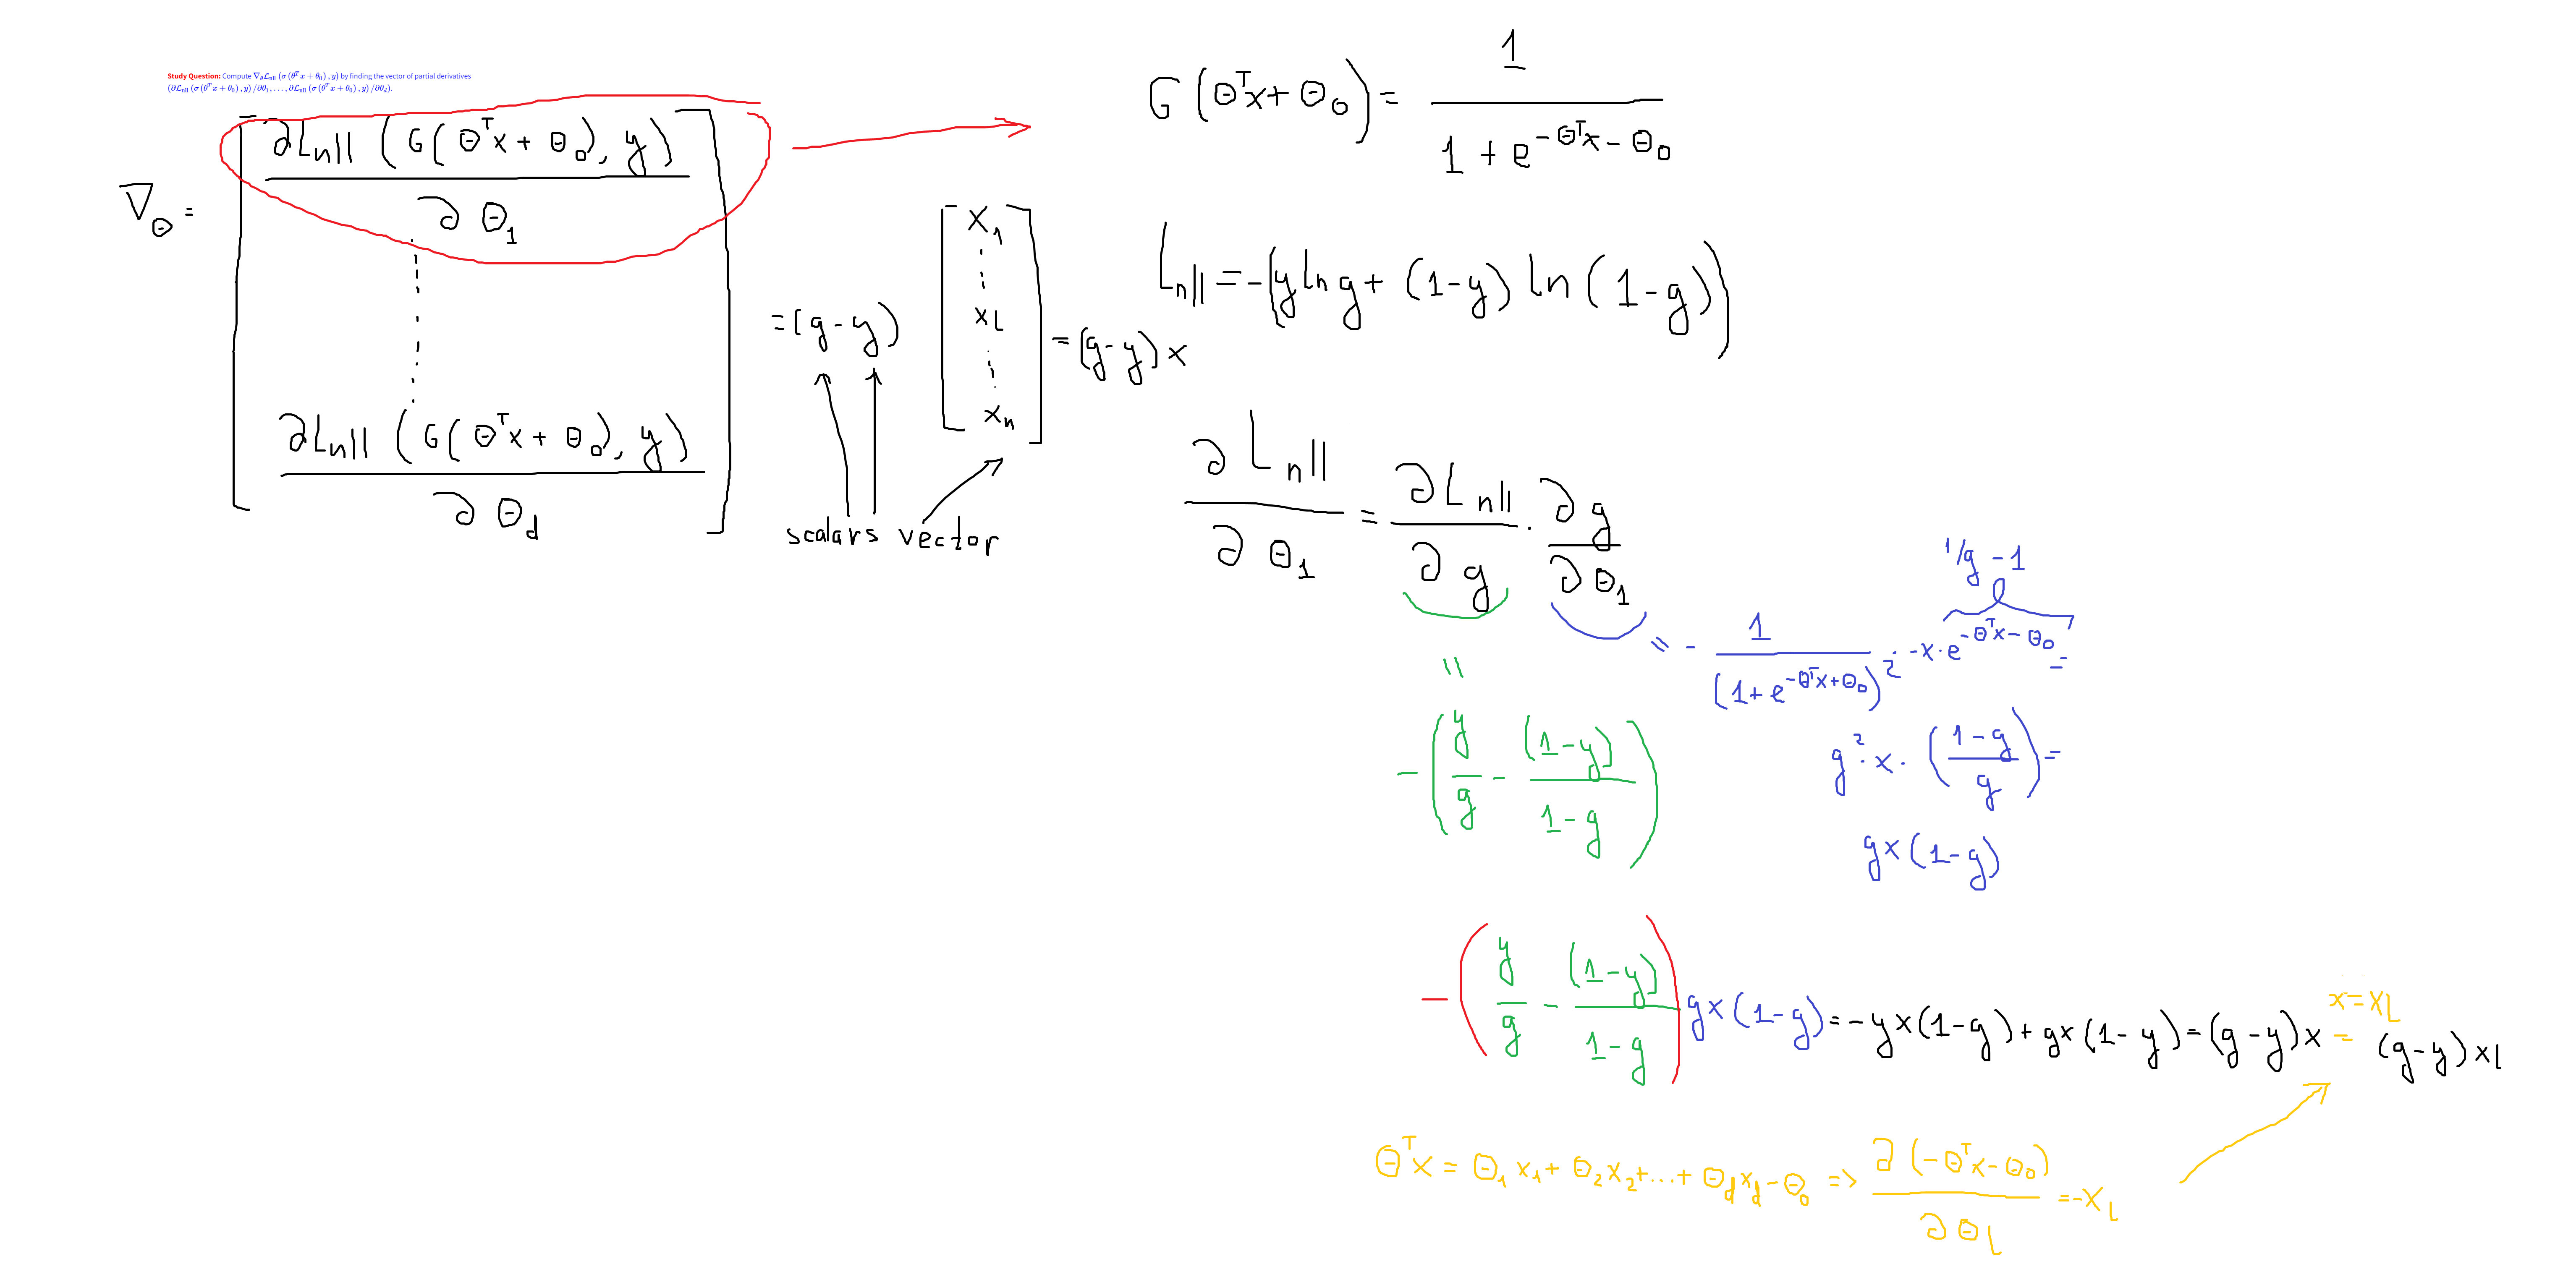 Study Question: Compute ∇θℒnll (σ (θᵀx + θ₀) , y) by finding the vector of partial derivatives
(∂ℒnll (σ (θᵀx + θ₀) , y) /∂θ₁, . . . , ∂ℒnll (σ (θᵀx + θ₀) , y) /∂θd).
∇Θ =
∂Lnll (G(Θᵀx + Θ₀), y)
∂Θ₁
∂Lnll (G(Θᵀx + Θ₀), y)
∂Θd
=(g-y)
x₁
xL
xn
=(g-y)x
scalars vector
G(Θᵀx+Θ₀)=
1
1+e^-Θᵀx-Θ₀
Lnll=-(y ln g+ (1-y) ln (1-g))
∂Lnll / ∂Θ₁ = ∂Lnll / ∂g · ∂g / ∂Θ₁
1/g - 1
= - 1 / (1+e^-Θᵀx+Θ₀)² · -x·e^-Θᵀx-Θ₀ =
=
-(y/g - (1-y)/(1-g))
g²·x·((1-g)/g)=
gx(1-g)
-(y/g - (1-y)/(1-g)) gx(1-g)=-yx(1-g)+gx(1-y)=(g-y)x = (g-y)xL
x=xL
Θᵀx = Θ₁x₁+Θ₂x₂+...+Θdxd-Θ₀ => ∂(-Θᵀx-Θ₀) / ∂ΘL =-xL